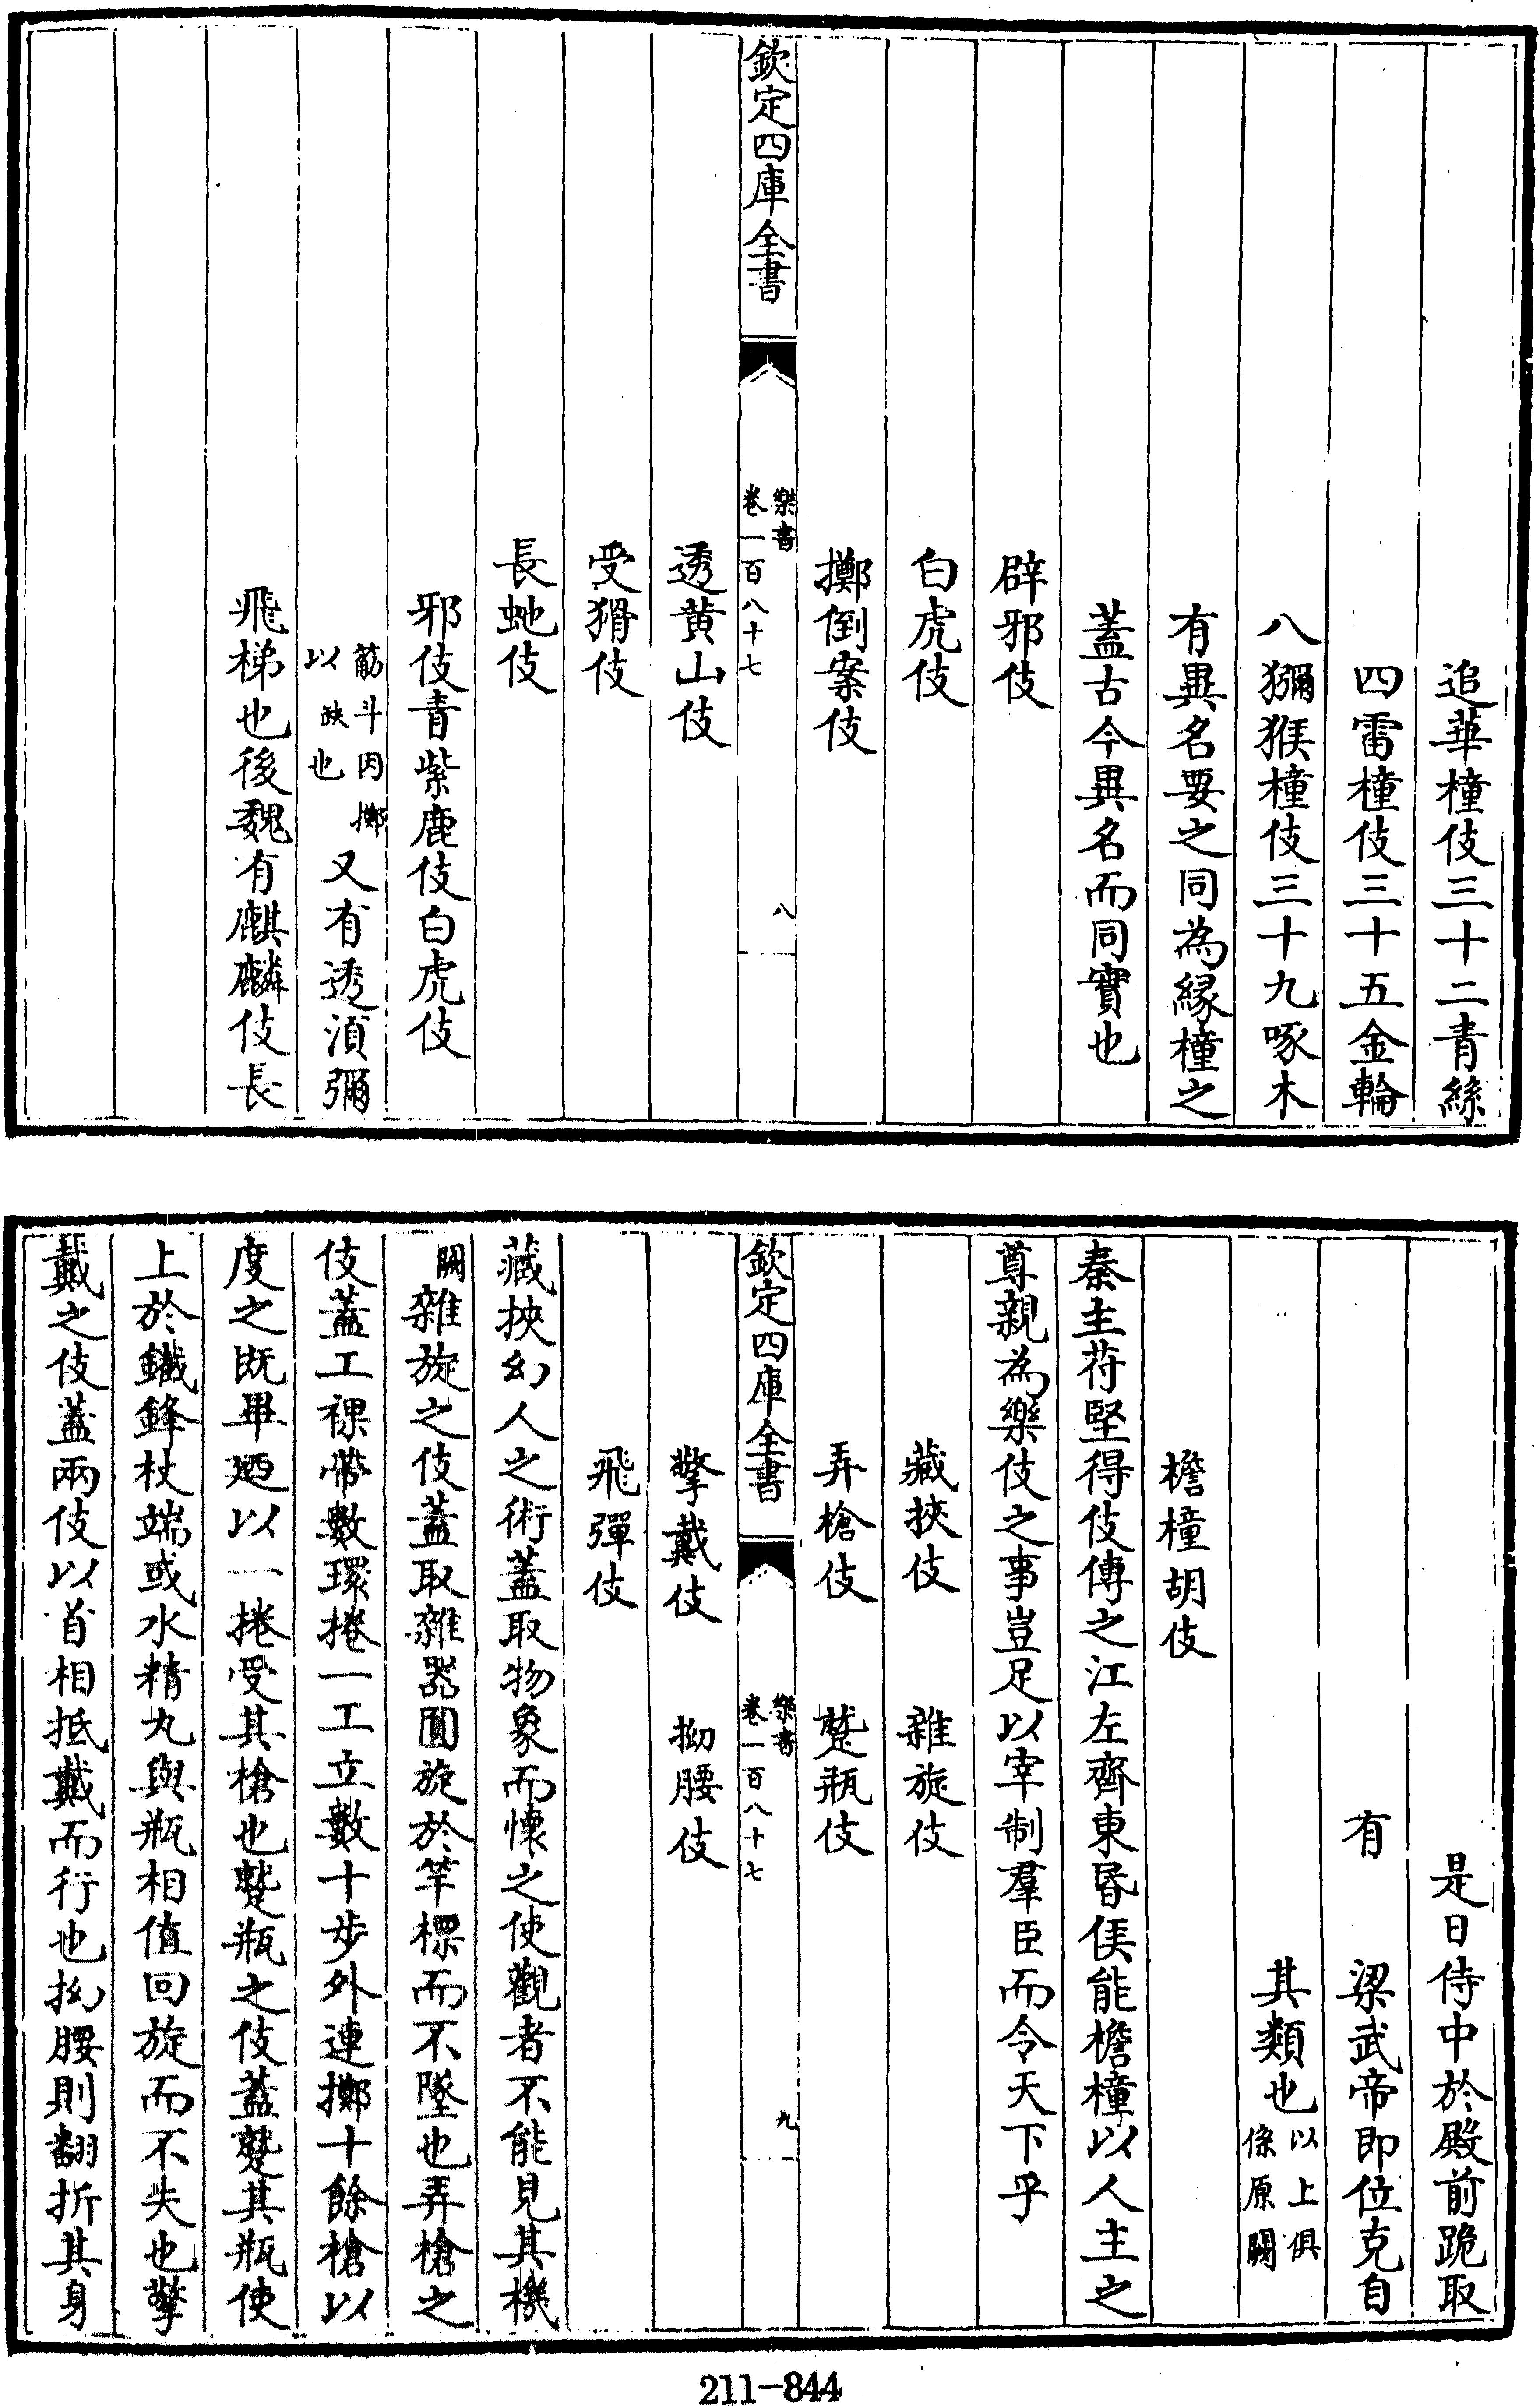 追華橦伎三十二青絲
四雷橦伎三十五金輪
八獼猴橦伎三十九啄木
有異名要之同為緣橦之
蓋古今異名而同實也
辟邪伎
白虎伎
擲倒案伎
欽定四庫全書
樂書
卷一百八十七
八
透黄山伎
受猾伎
長虵伎
邪伎青紫鹿伎白虎伎
觔斗因擲
以 缺 也
又有透湏彌
飛梯也後魏有麒麟伎長
是日侍中於殿前跪取
有 梁武帝即位克自
其類也
以上俱
係原闕
檐橦胡伎
秦主苻堅得伎傳之江左齊東昏侯能檐橦以人主之
尊親為樂伎之事豈足以宰制羣臣而令天下乎
藏挾伎 雜旋伎
弄槍伎 蹵瓶伎
欽定四庫全書
樂書
卷一百八十七
九
擎戴伎 拗腰伎
飛彈伎
藏挾幻人之術蓋取物象而懷之使觀者不能見其機
闕雜旋之伎蓋取雜器圓旋於竿標而不墜也弄槍之
伎蓋工裸帶數環捲一工立數十步外連擲十餘槍以
度之既畢廼以一捲受其槍也蹵瓶之伎蓋蹵其瓶使
上於鐵鋒杖端或水精丸與瓶相值回旋而不失也擎
戴之伎蓋兩伎以首相抵戴而行也拗腰則翻折其身
211-844